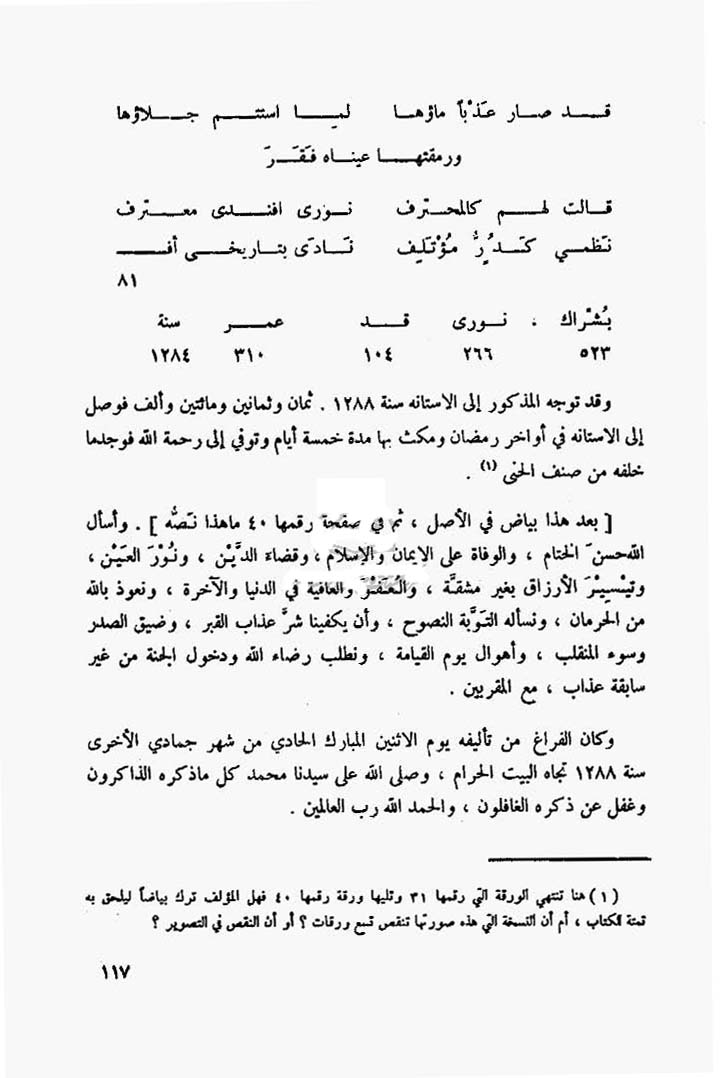 قد صار عَذْباً ماؤها لما استتم جلاؤها
ورمقتها عيناه فَقَرَّ
قالت لهم كالمحترف نورى افندى معترف
نَظمي كَدُرٍّ مُؤْتَلِف نَادَى بتاريخي أف
٨١
بُشْراك ، نورى قد عمر سنة
٥٢٣ ٢٦٦ ١٠٤ ٣١٠ ١٢٨٤
وقد توجه المذكور إلى الاستانه سنة ١٢٨٨ . ثمان وثمانين ومائتين وألف فوصل
إلى الاستانه في أواخر رمضان ومكث بها مدة خمسة أيام وتوفي إلى رحمة الله فوجدما
خلفه من صنف الحنى (١) .
[ بعد هذا بياض في الأصل ، ثم في صفحة رقمها ٤٠ ماهذا نَصّه ] . وأسأل
الله حسنَ الختام ، والوفاة على الإيمان والإسلام ، وقضاءَ الدَّيْن ، ونُوْرَ العَيْن ،
وتيْسِيْرَ الأرزاق بغير مشقَّة ، والعَفْوَ والعافية في الدنيا والآخرة ، ونعوذ بالله
من الحرمان ، ونسأله التَوْبة النصوح ، وأن يكفينا شرَّ عذاب القبر ، وضيق الصدر
وسوء المنقلب ، وأهوال يوم القيامة ، ونطلب رضاء الله ودخول الجنة من غير
سابقة عذاب ، مع المقربين .
وكان الفراغ من تأليفه يوم الاثنين المبارك الحادي من شهر جمادي الأخرى
سنة ١٢٨٨ تجاه البيت الحرام ، وصلى الله على سيدنا محمد كل ماذكره الذاكرون
وغفل عن ذكره الغافلون ، والحمد الله رب العالمين .
(١) هنا تنتهي الورقة التي رقمها ٣١ وتليها ورقة رقمها ٤٠ فهل المؤلف ترك بياضاً ليلحق به
تتمة الكتاب ، أم أن النسخة التي هذه صورتها تنقص تسع ورقات ؟ أو أن النقص في التصوير ؟
١١٧